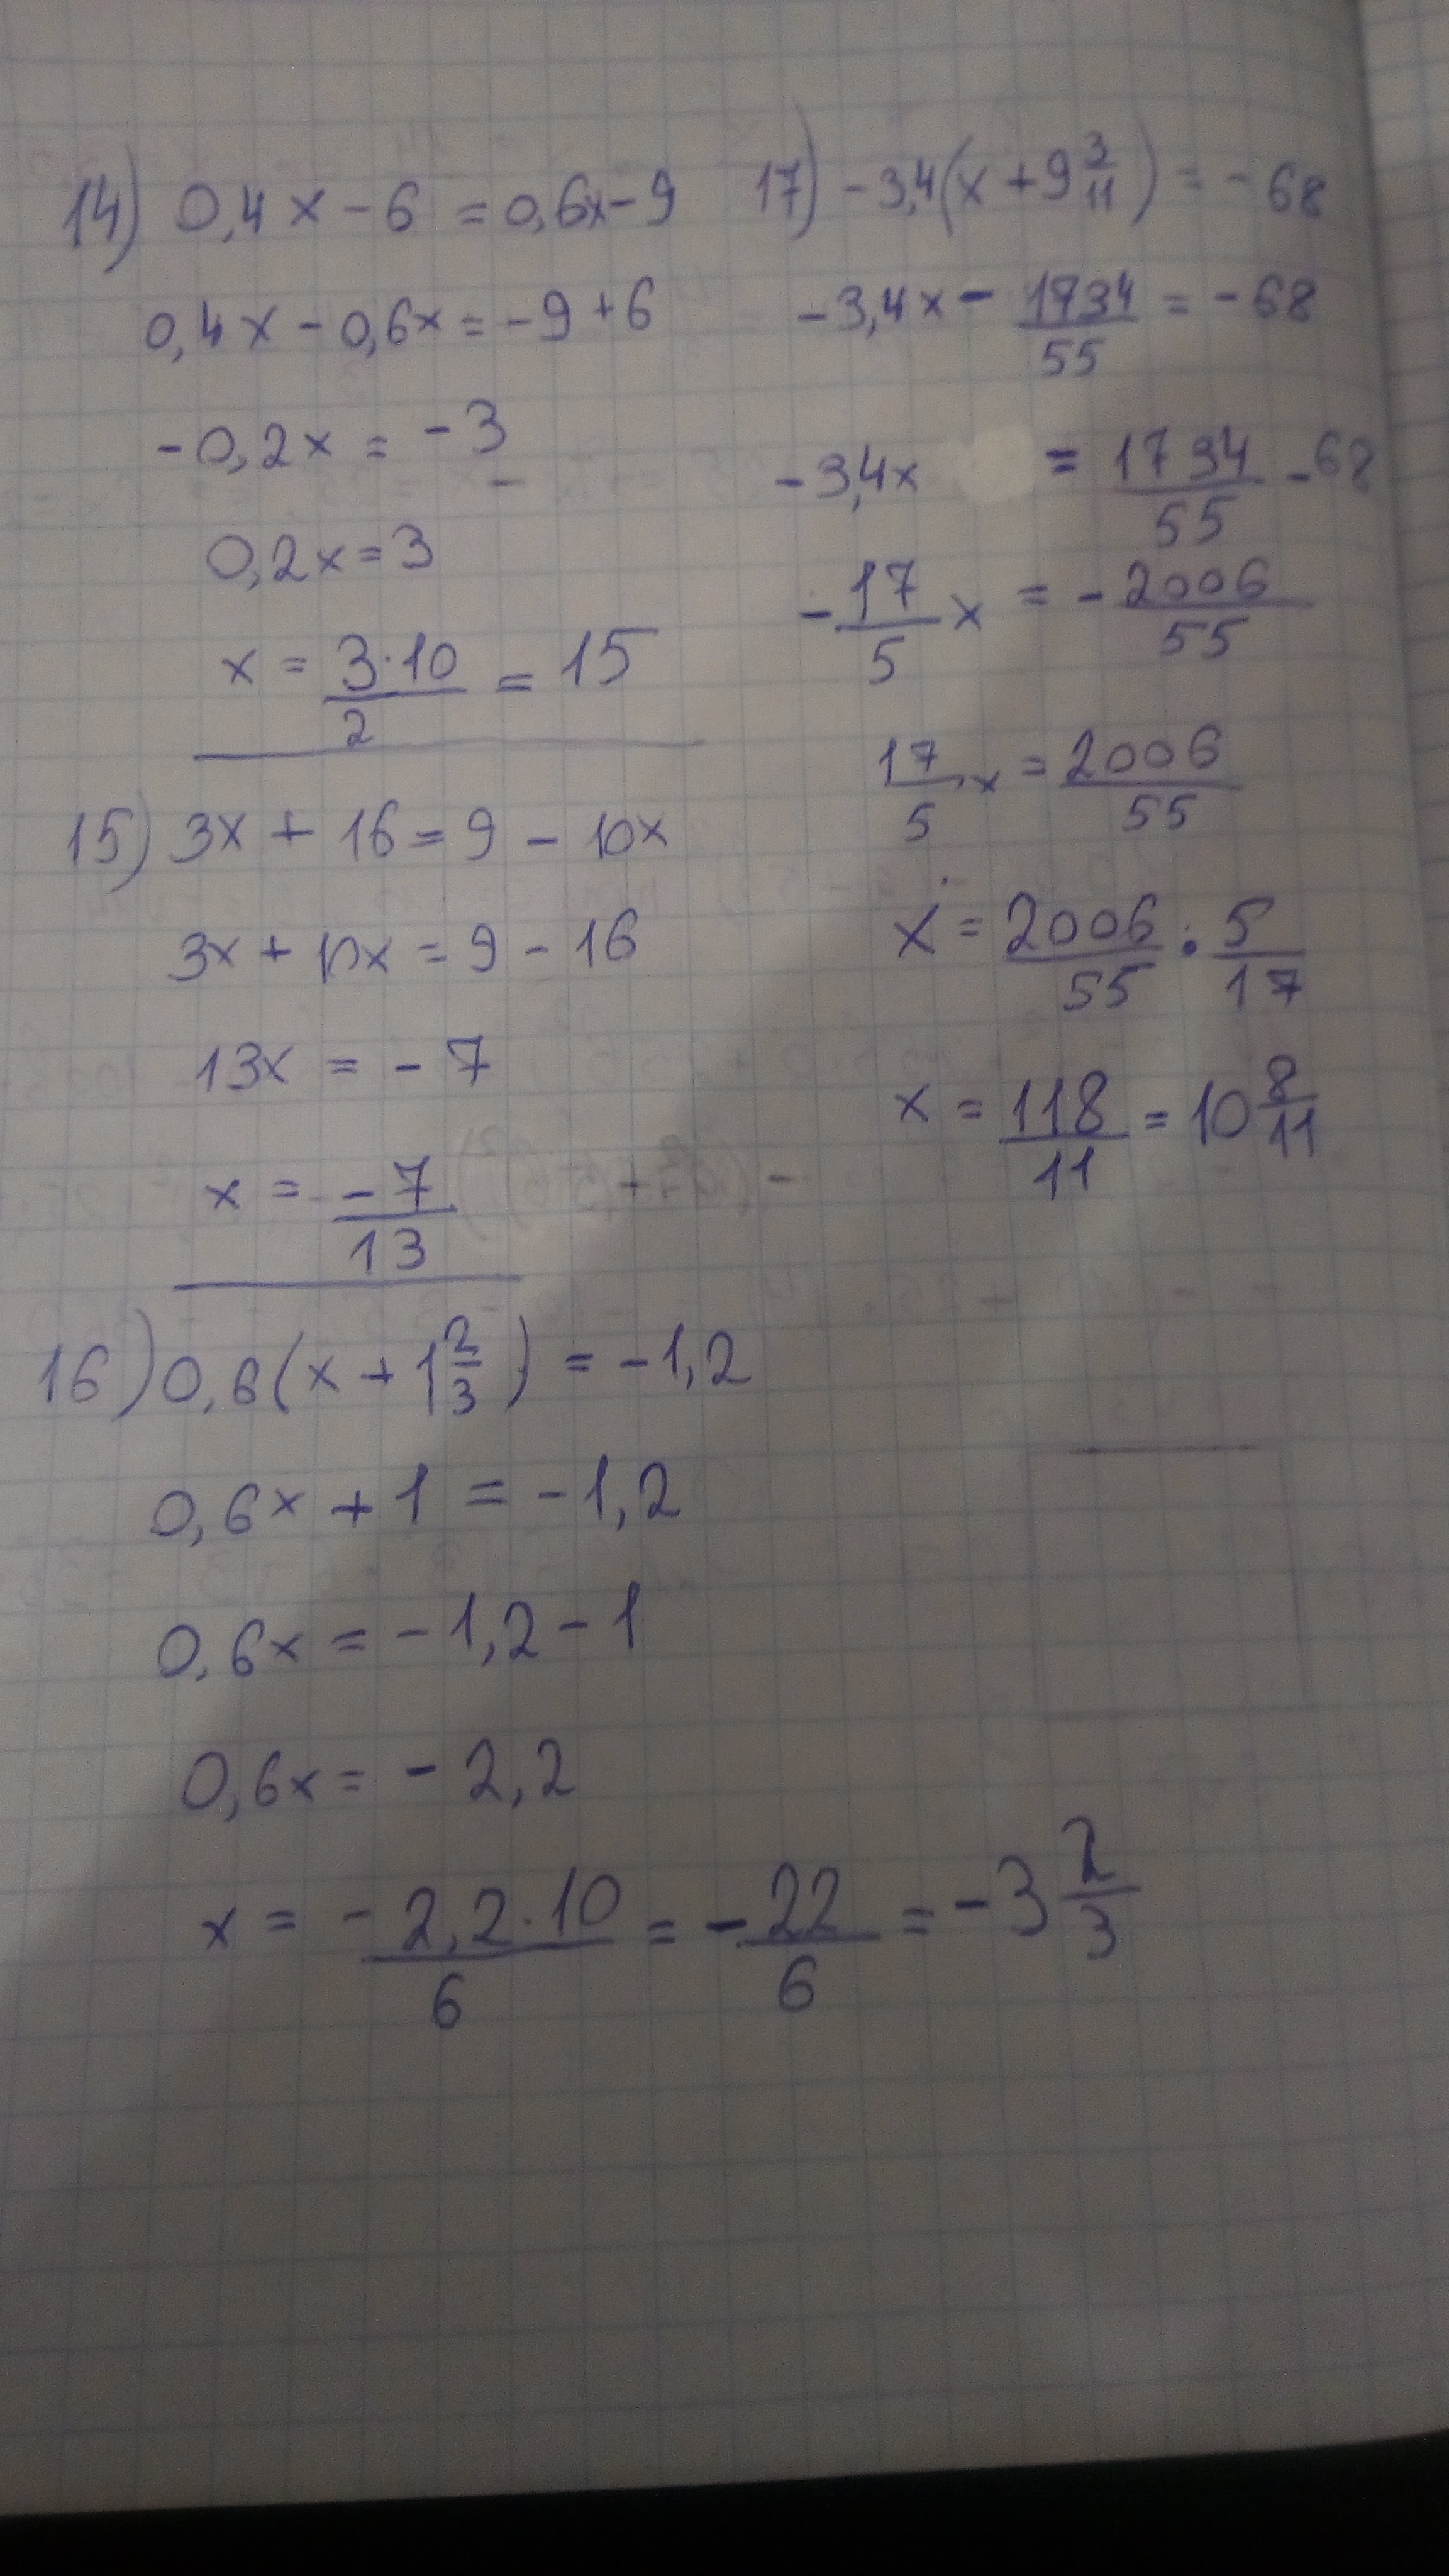 14) 0,4x - 6 = 0,6x - 9
0,4x - 0,6x = -9 + 6
-0,2x = -3
0,2x = 3
x = 3·10/2 = 15
15) 3x + 16 = 9 - 10x
3x + 10x = 9 - 16
13x = -7
x = -7/13
16) 0,6(x + 1 2/3) = -1,2
0,6x + 1 = -1,2
0,6x = -1,2 - 1
0,6x = -2,2
x = -2,2·10/6 = -22/6 = -3 2/3
17) -3,4(x + 9 3/11) = -68
-3,4x - 1734/55 = -68
-3,4x = 1734/55 - 68
-17/5 x = -2006/55
17/5 x = 2006/55
x = 2006/55 · 5/17
x = 118/11 = 10 8/11